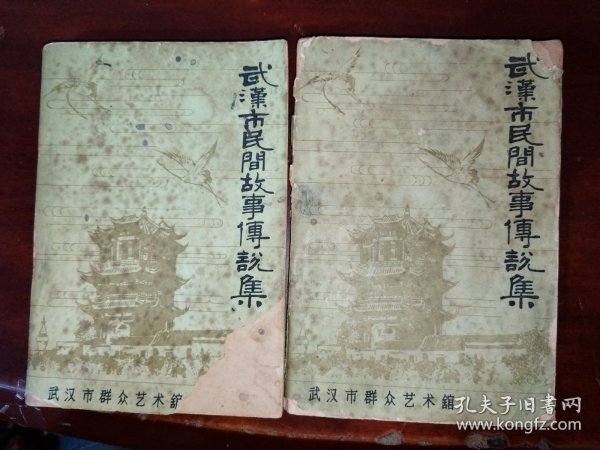 武漢市民間故事傳説集
武汉市群众艺术舘
武漢市民間故事傳説集
武汉市群众艺术舘
孔夫子旧书网
www.kongfz.com